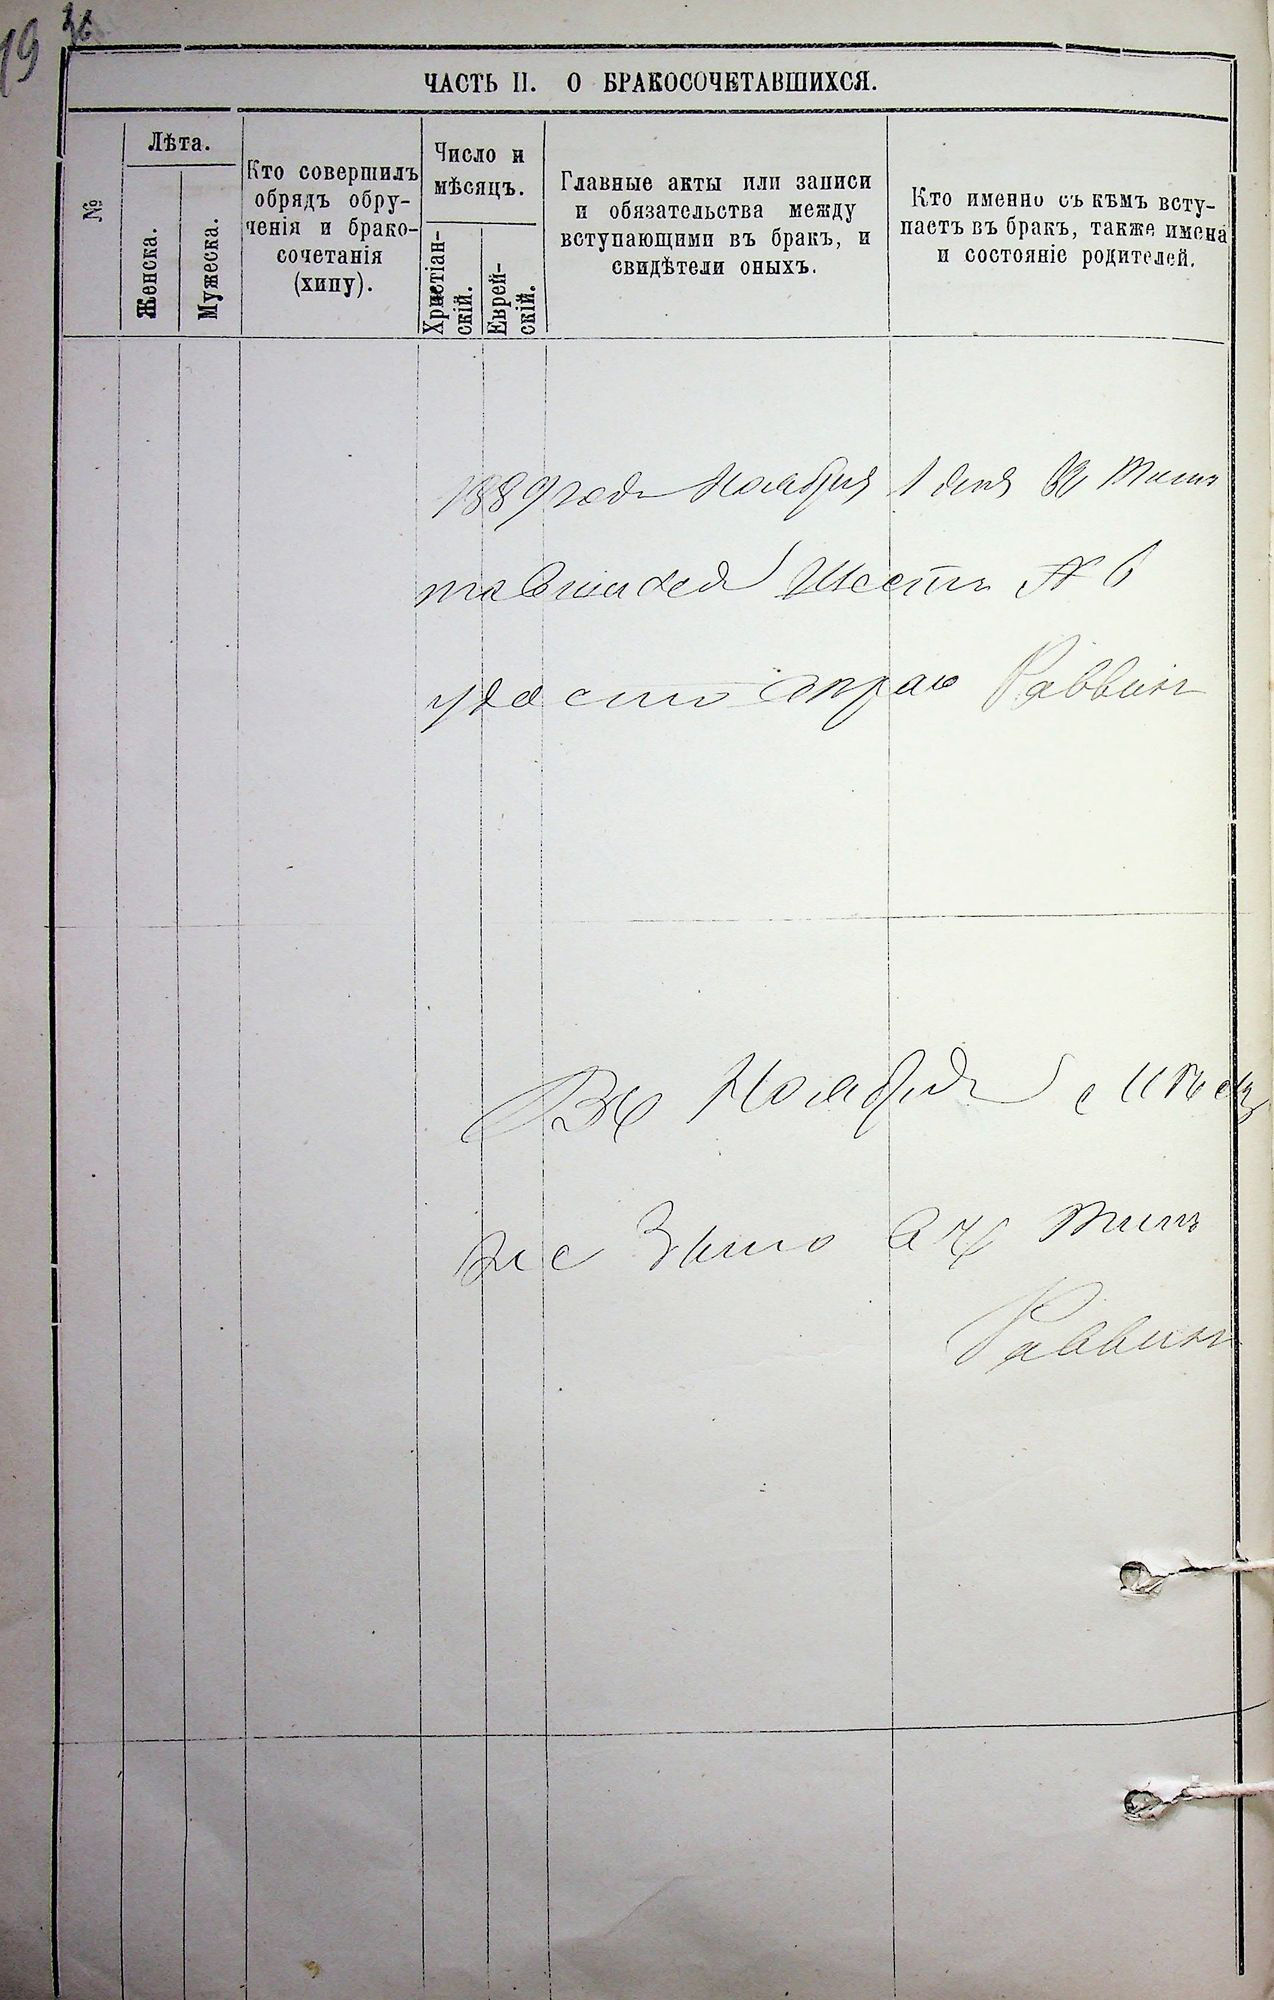 19 36
ЧАСТЬ II. О БРАКОСОЧЕТАВШИХСЯ.
№
Лѣта.
Женска.
Мужеска.
Кто совершилъ
обрядъ обру-
ченія и брако-
сочетанія
(хипу).
Число и
мѣсяцъ.
Христіан-
скій.
Еврей-
скій.
Главные акты или записи
и обязательства между
вступающими въ бракъ, и
свидѣтели оныхъ.
Кто именно съ кѣмъ всту-
паетъ въ бракъ, также имена
и состояніе родителей.
1889 года Ноября 1 дня
Шесть № 6
Раввинъ
Въ Ноябрѣ
не
Раввинъ